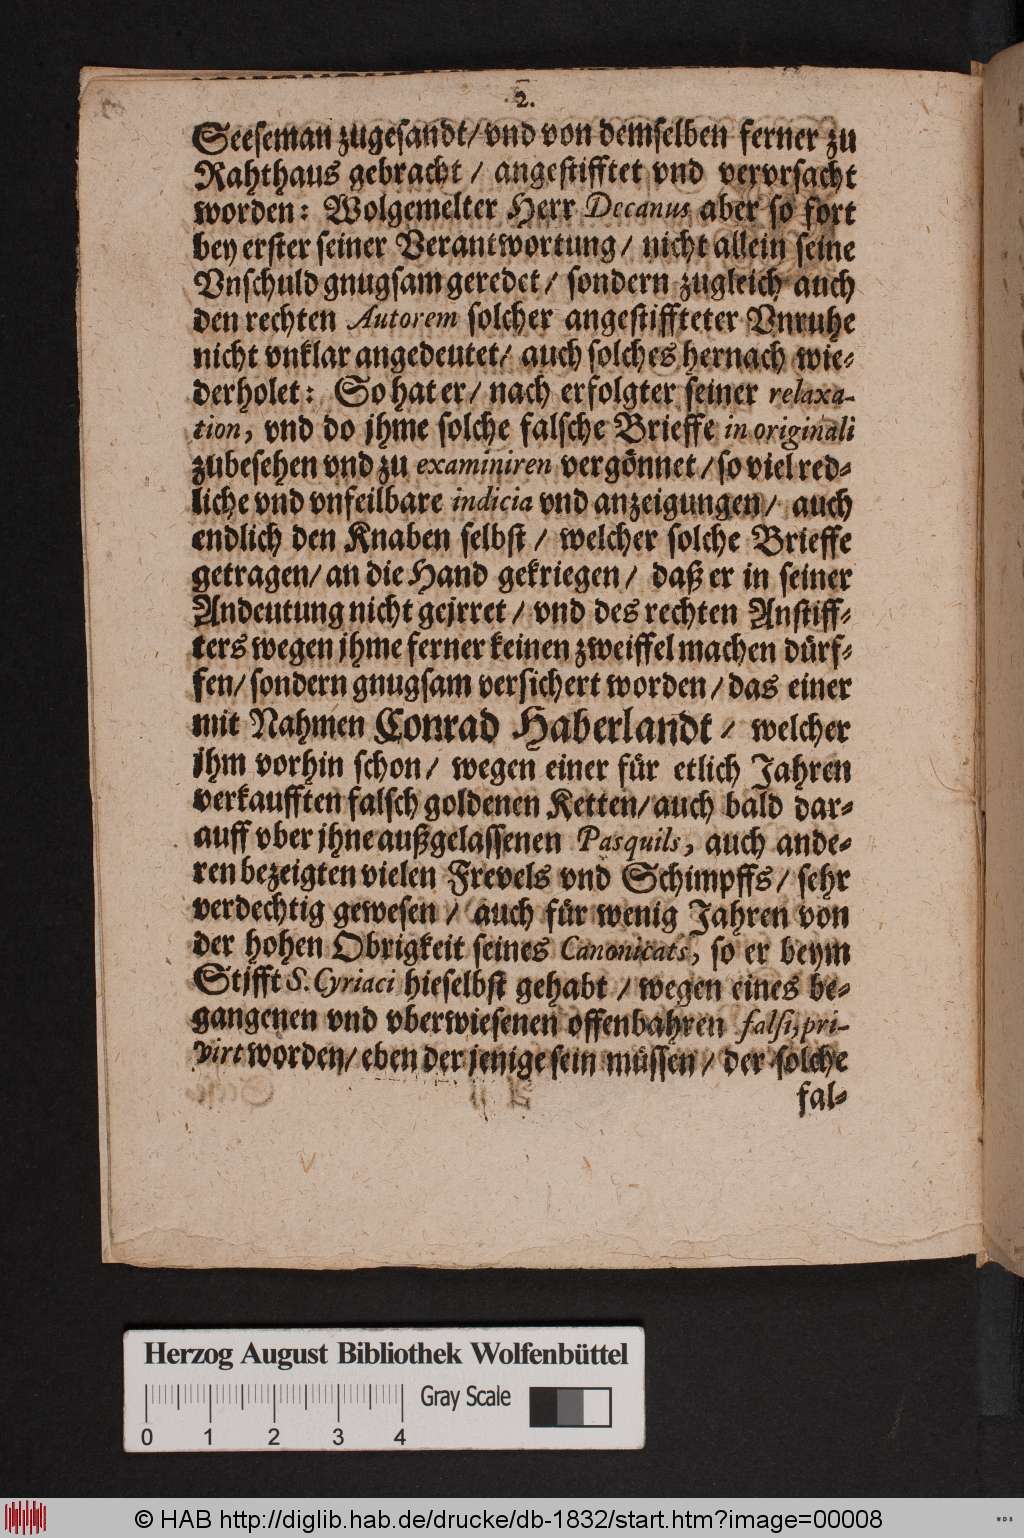 2.
Seeseman zugesandt/ vnd von demselben ferner zu
Rahthaus gebracht / angestifftet vnd vervrsacht
worden: Wolgemelter Herr Decanus aber so fort
bey erster seiner Verantwortung/ nicht allein seine
Vnschuld gnugsam geredet/ sondern zugleich auch
den rechten Autorem solcher angestiffteter Vnruhe
nicht vnklar angedeutet/ auch solches hernach wie-
derholet: So hat er/ nach erfolgter seiner relaxa-
tion, vnd do jhme solche falsche Brieffe in originali
zubesehen vnd zu examiniren vergönnet / so viel red-
liche vnd vnfeilbare indicia vnd anzeigungen/ auch
endlich den Knaben selbst / welcher solche Brieffe
getragen/ an die Hand gekriegen/ daß er in seiner
Andeutung nicht gejrret / vnd des rechten Anstiff-
ters wegen jhme ferner keinen zweiffel machen dürf-
fen/ sondern gnugsam versichert worden / das einer
mit Nahmen Conrad Haberlandt / welcher
jhm vorhin schon/ wegen einer für etlich Jahren
verkaufften falsch goldenen Ketten/ auch bald dar-
auff vber jhne außgelassenen Pasquils, auch ande-
ren bezeigten vielen Frevels vnd Schimpffs/ sehr
verdechtig gewesen / auch für wenig Jahren von
der hohen Obrigkeit seines Canonicats, so er beym
Stifft S. Cyriaci hieselbst gehabt / wegen eines be-
gangenen vnd vberwiesenen offenbahren falsi, pri-
virt worden/ eben der jenige sein müssen / der solche
fal-
Herzog August Bibliothek Wolfenbüttel
Gray Scale
0 1 2 3 4
© HAB http://diglib.hab.de/drucke/db-1832/start.htm?image=00008